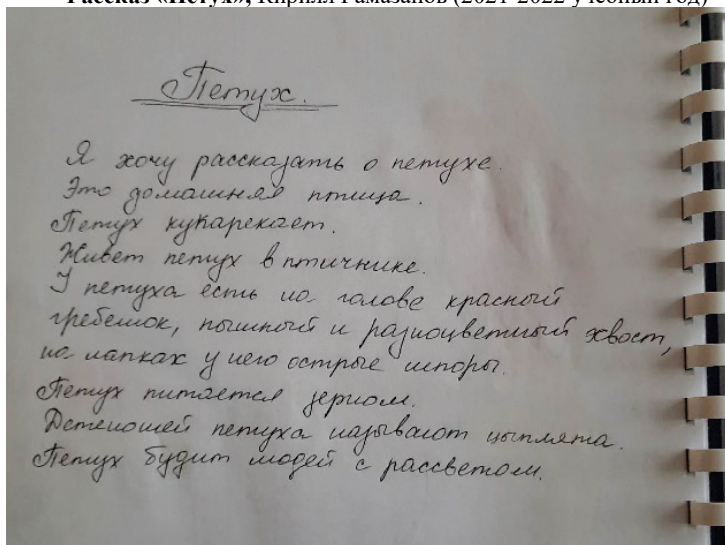 Рассказ «Петух», Кирилл Рамазанов (2021-2022 учебный год)
Петух.
Я хочу рассказать о петухе.
Это домашняя птица.
Петух кукарекает.
Живет петух в птичнике.
У петуха есть на голове красный
гребешок, пышный и разноцветный хвост,
на лапках у него острые шпоры.
Петух питается зерном.
Детенышей петуха называют цыплята.
Петух будит людей с рассветом.